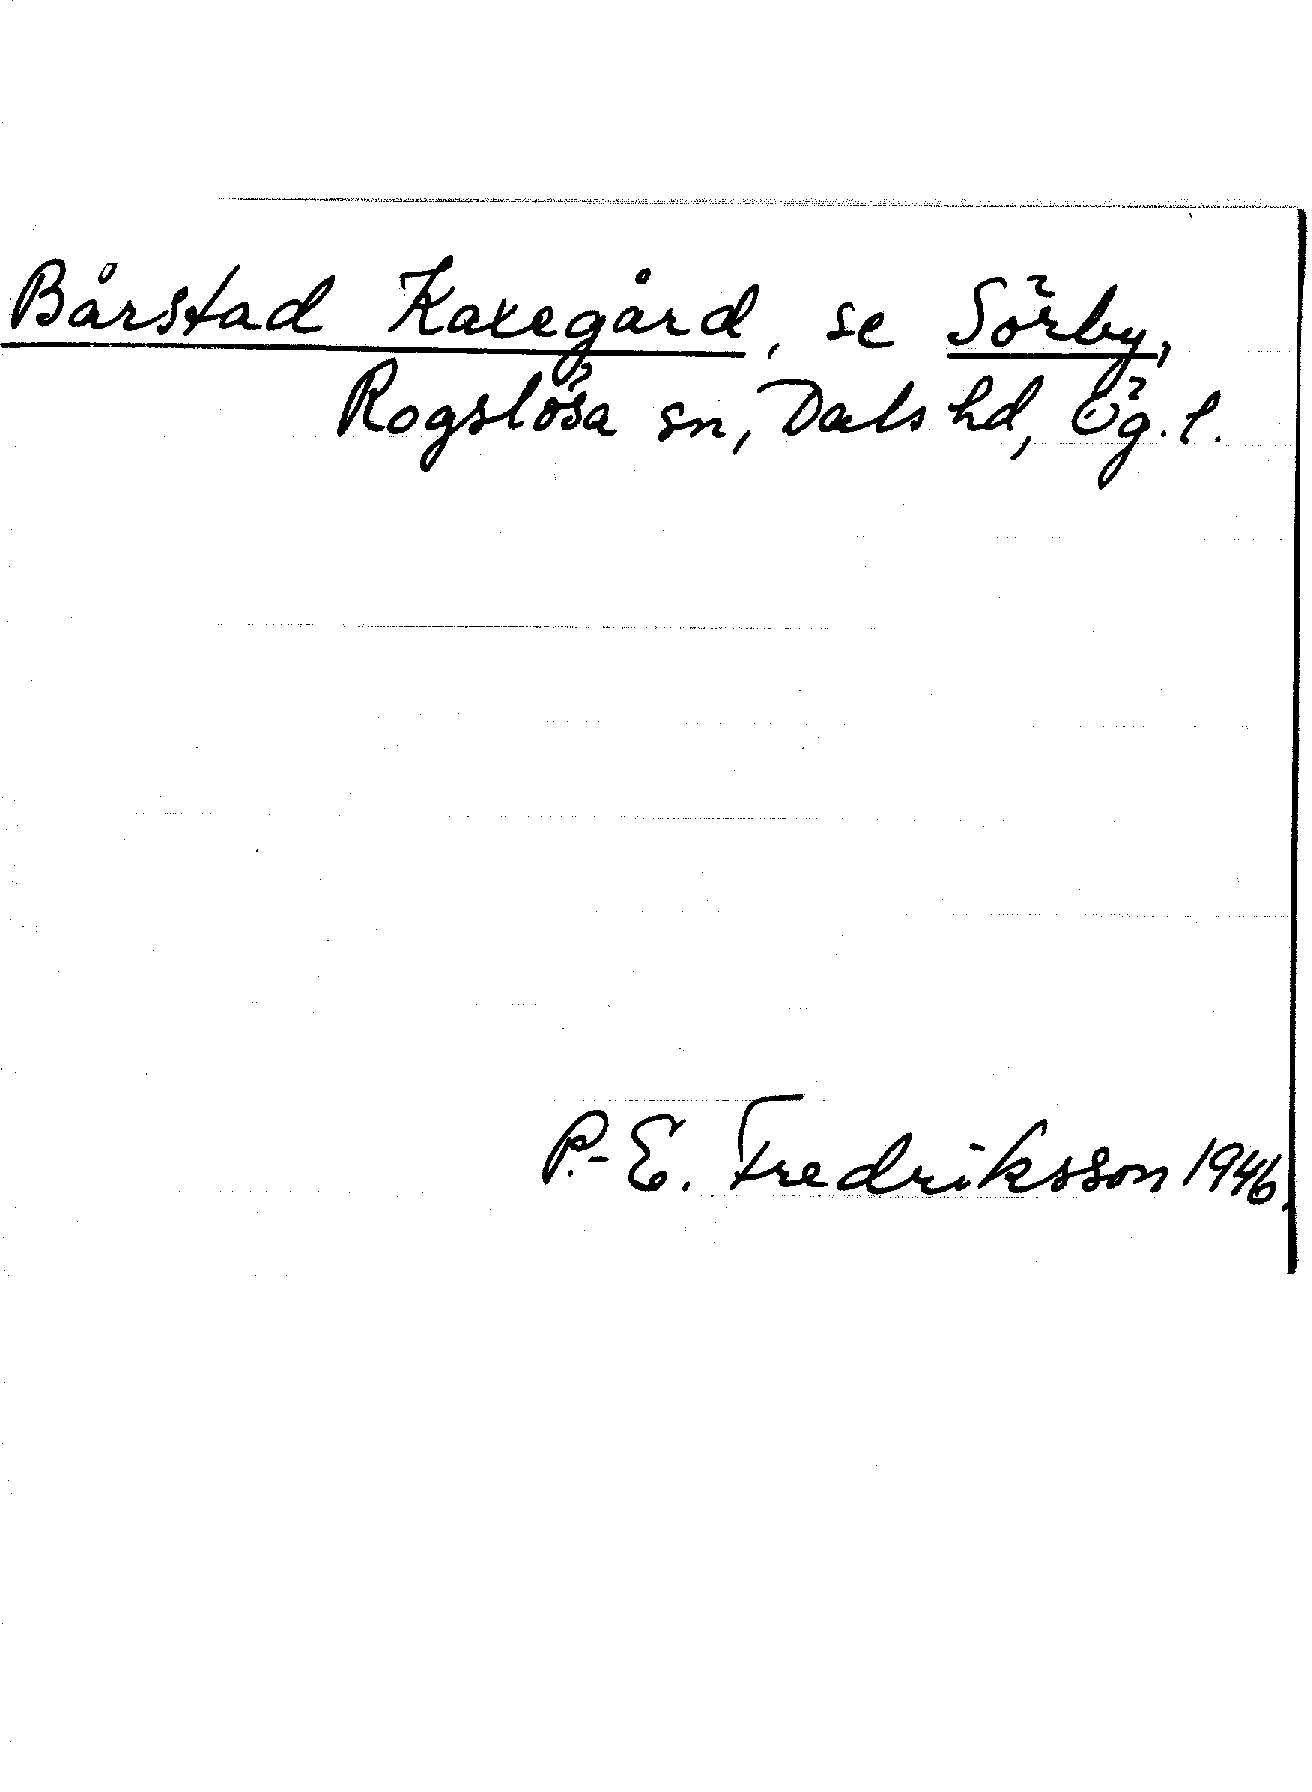 Bårstad Kaxegård, se Sörby,
Rogslösa sn, Dals hd, Ög. l.
P.-E. Fredriksson 1946.